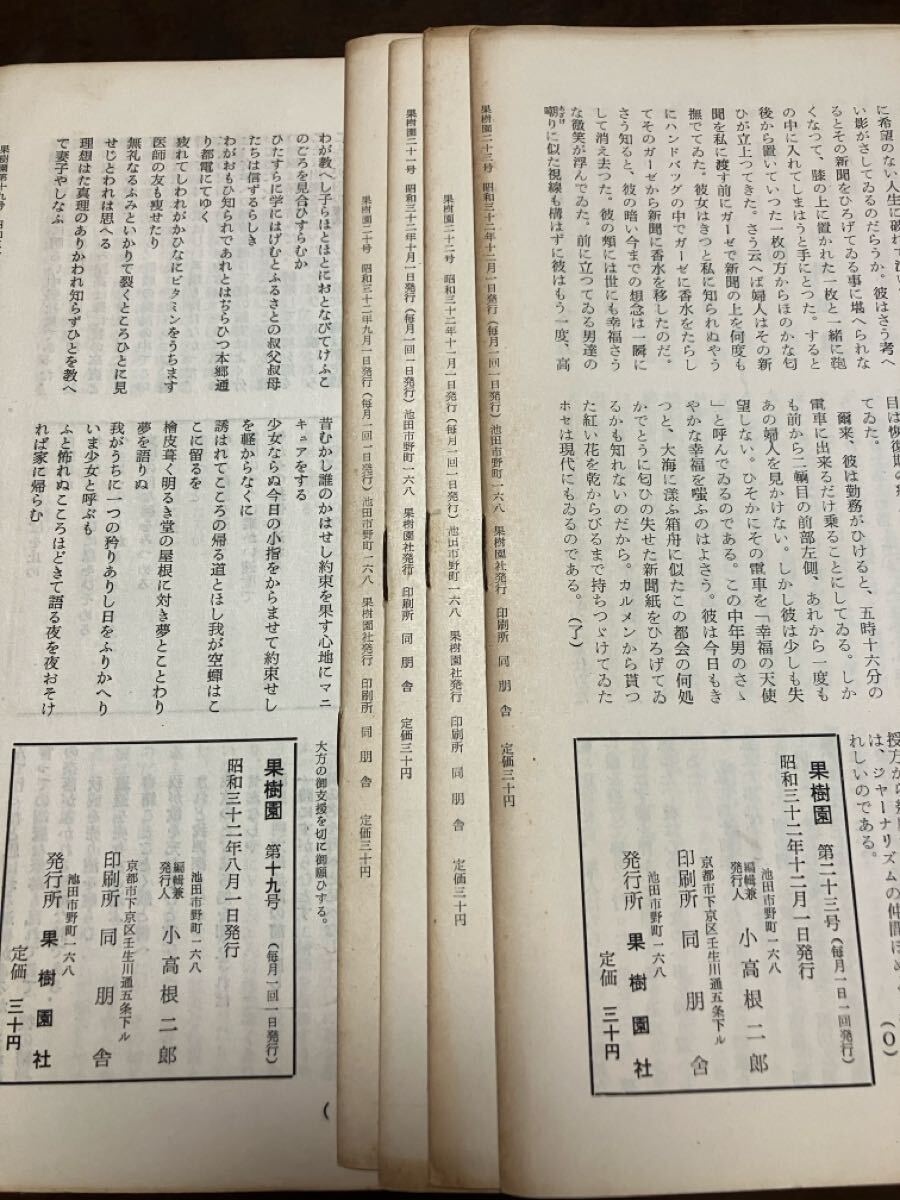 に希望のない人生に破れて
い影がさしてゐるのだらうか。彼はさう考へ
るとその新聞をひろげてゐる事に堪へられな
くなつて、膝の上に置かれた一枚と一緒に鞄
の中に入れてしまはうと手にとつた。すると
後から置いていつた一枚の方からほのかな匂
ひが立上つてきた。さう云へば婦人はその新
聞を私に渡す前にガーゼで新聞の上を何度も
撫でてゐた。彼女はきつと私に知られぬやう
にハンドバッグの中でガーゼに香水をたらし
てそのガーゼから新聞に香水を移したのだ。
さう知ると、彼の暗い今までの想念は一瞬に
して消え去つた。彼の頬には世にも幸福さう
な微笑が浮んでゐた。前に立つてゐる男達の
嘲りに似た視線も構はずに彼はもう一度、高
てゐた。
爾来、彼は勤務がひけると、五時十六分の
電車に出来るだけ乗ることにしてゐる。しか
も前から二輌目の前部左側、あれから一度も
あの婦人を見かけない。しかし彼は少しも失
望しない。ひそかにその電車を「幸福の天使
」と呼んでゐるのである。この中年男のさゝ
やかな幸福を嗤ふのはよさう。彼は今日もき
つと、大海に漾ふ箱舟に似たこの都会の何処
かでとうに匂ひの失せた新聞紙をひろげてゐ
るかも知れないのだから。カルメンから貰つ
た紅い花を乾からびるまで持ちつゞけてゐた
ホセは現代にもゐるのである。(了)
は、ジャーナリズムの仲間ぼめ
れしいのである。
(O)
果樹園 第二十三号(毎月一日一回発行)
昭和三十二年十二月一日発行
池田市野町一六八
編輯兼発行人 小高根二郎
京都市下京区壬生川通五条下ル
印刷所 同朋舎
池田市野町一六八
発行所 果樹園社
定価 三十円
果樹園二十三号 昭和三十二年十二月一日発行(毎月一回一日発行)池田市野町一六八 果樹園社発行 印刷所 同朋舎 定価三十円
果樹園二十二号 昭和三十二年十一月一日発行(毎月一回一日発行)池田市野町一六八 果樹園社発行 印刷所 同朋舎 定価三十円
果樹園二十一号 昭和三十二年十月一日発行(毎月一回一日発行)池田市野町一六八 果樹園社発行 印刷所 同朋舎 定価三十円
果樹園二十号 昭和三十二年九月一日発行(毎月一回一日発行)池田市野町一六八 果樹園社発行 印刷所 同朋舎 定価三十円
わが教へし子らはとほとにおとなびてけふこ
のごろを見合ひすらむか
ひたすらに学にはげむとふるさとの叔父叔母
たちは信ずるらしき
わがおもひ知られであれとはぢらひつ本郷通
り都電にてゆく
疲れてしわれがかひなにビタミンをうちます
医師の友も痩せたり
無礼なるふみといかりて裂くところひとに見
せじとわれは思へる
理想はた真理のありかわれ知らずひとを教へ
て妻子やしなふ
昔むかし誰のかはせし約束を果す心地にマニ
キュアをする
少女ならぬ今日の小指をからませて約束せし
を軽からなくに
誘はれてこころの帰る道とはし我が空蝉はこ
こに留るを
檜皮葺く明るき堂の屋根に対き夢とことわり
夢を語りぬ
我がうちに一つの矜りありし日をふりかへり
いま少女と呼ぶも
ふと怖れぬこころほどきて語る夜を夜おそけ
れば家に帰らむ
大方の御支援を切に御願ひする。
果樹園 第十九号(毎月一回一日発行)
昭和三十二年八月一日発行
池田市野町一六八
編輯兼発行人 小高根二郎
京都市下京区壬生川通五条下ル
印刷所 同朋舎
池田市野町一六八
発行所 果樹園社
定価 三十円
果樹園第十九号